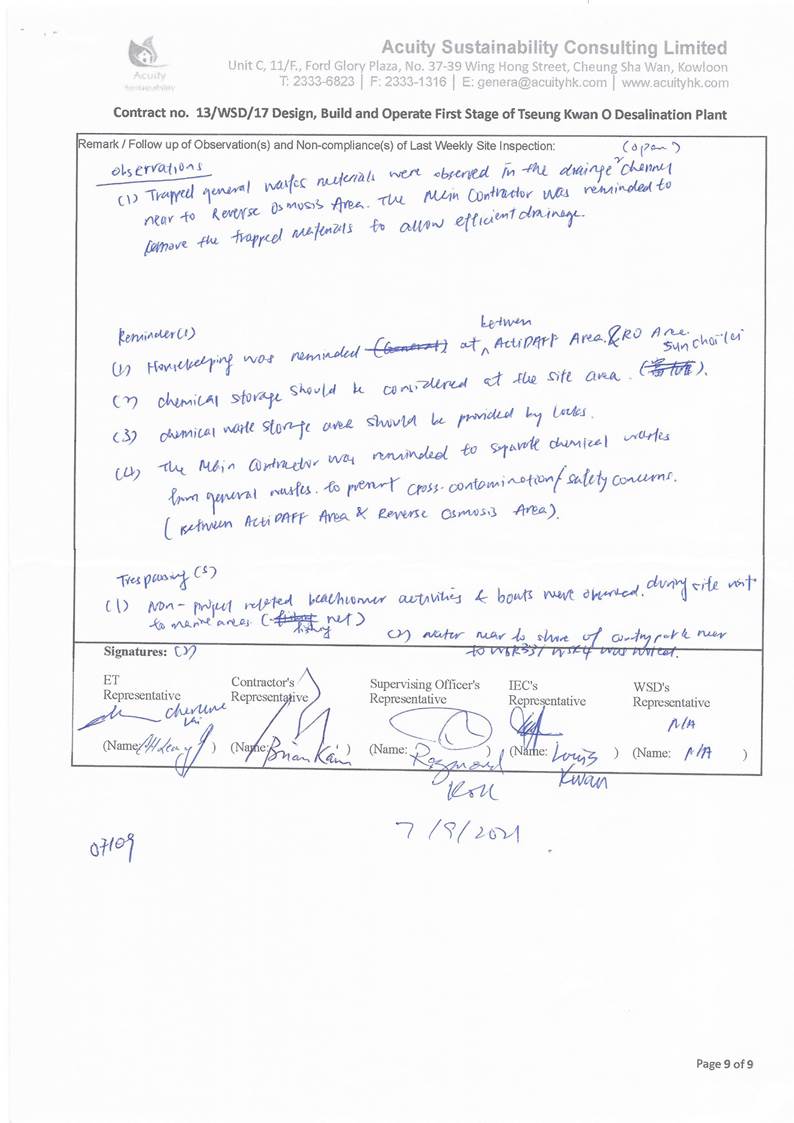 Acuity Sustainability Consulting Limited
Unit C, 11/F., Ford Glory Plaza, No. 37-39 Wing Hong Street, Cheung Sha Wan, Kowloon
T: 2333-6823 | F: 2333-1316 | E: genera@acuityhk.com | www.acuityhk.com
Acuity
Sustainability
Contract no. 13/WSD/17 Design, Build and Operate First Stage of Tseung Kwan O Desalination Plant
Remark / Follow up of Observation(s) and Non-compliance(s) of Last Weekly Site Inspection:
(open)
Observations
(1) Trapped general wastes materials were observed in the drainge channel
near to Reverse Osmosis Area. The Main Contractor was reminded to
remove the trapped materials to allow efficient drainage.
Reminder(s)
between
(1) Housekeeping was reminded (General) at ActiDAFF Area & RO Area.
Sun Choi Lei
(2) chemical storage should be considered at the site area. ( ).
(3) chemical waste storage area should be provided by locks.
(4) The Main Contractor was reminded to separate chemical wastes
from general wastes. to prevent cross-contamination/safety concerns.
(Between ActiDAFF Area & Reverse Osmosis Area).
Trespassing (s)
(1) Non-project related beachcomer activities & boats were observed. during site visit
to marine areas (fishing net)
fishing
(2) water near to shore of country park near
to WSR33/ WSR4 was noticed.
Signatures: (2)
ET
Representative
Contractor's
Representative
Supervising Officer's
Representative
IEC's
Representative
WSD's
Representative
Cherlene
N/A
(Name: )
(Name: Brian Kam )
(Name: Raymond )
(Name: Louis )
(Name: N/A )
Koll
Kwan
7/9/2021
07/09
Page 9 of 9